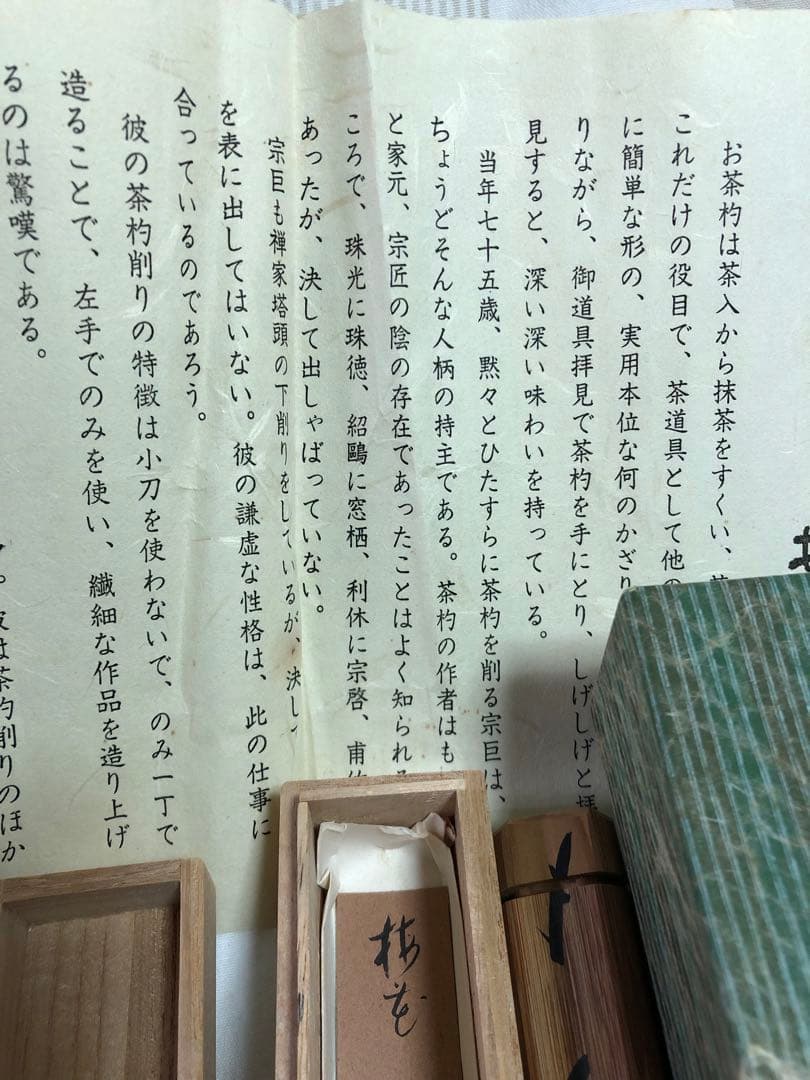 お茶杓は茶入から抹茶をすくい、
これだけの役目で、茶道具として他の
に簡単な形の、実用本位な何のかざり
りながら、御道具拝見で茶杓を手にとり、しげしげと拝
見すると、深い深い味わいを持っている。
当年七十五歳、黙々とひたすらに茶杓を削る宗巨は、
ちょうどそんな人柄の持主である。茶杓の作者はも
と家元、宗匠の陰の存在であったことはよく知られる
ころで、珠光に珠徳、紹鷗に窓栖、利休に宗啓、甫竹
あったが、決して出しゃばっていない。
宗巨も禅家塔頭の下削りをしているが、決して
を表に出してはいない。彼の謙虚な性格は、此の仕事に
合っているのであろう。
彼の茶杓削りの特徴は小刀を使わないで、のみ一丁で
造ることで、左手でのみを使い、繊細な作品を造り上げ
るのは驚嘆である。
彼は茶杓削りのほか
梅花